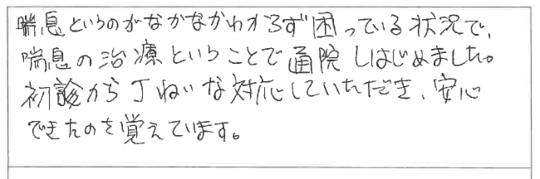 喘息というのがなかなかわからず困っている状況で、
喘息の治療ということで通院しはじめました。
初診から丁ねいな対応していただき、安心
できたのを覚えています。